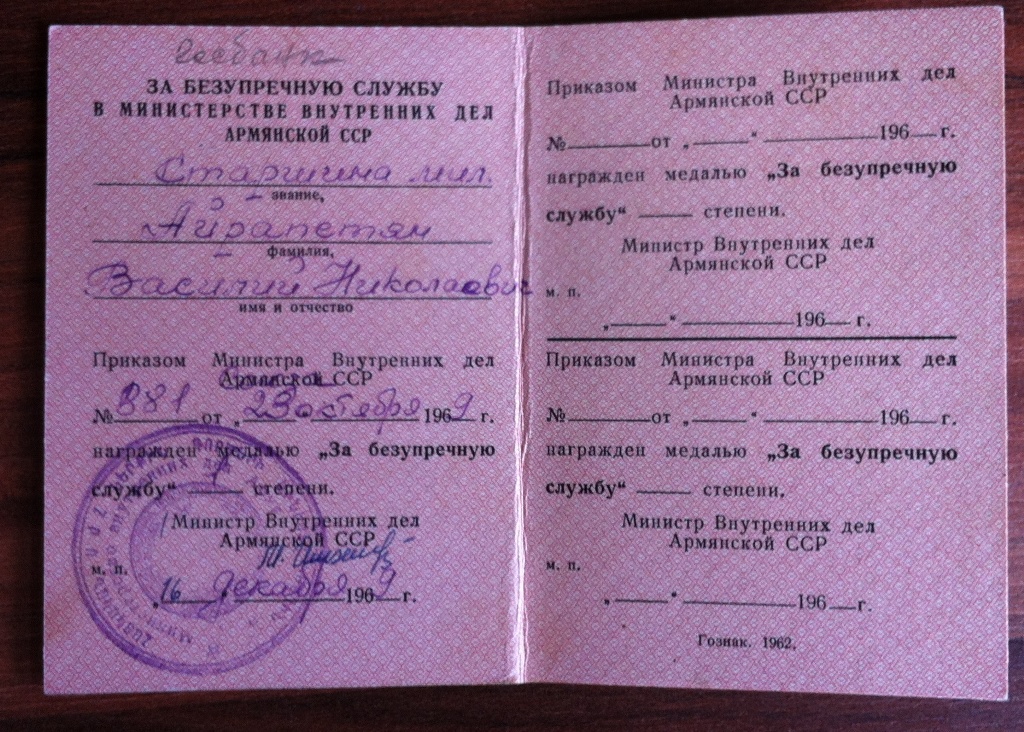 Госбанк
ЗА БЕЗУПРЕЧНУЮ СЛУЖБУ
В МИНИСТЕРСТВЕ ВНУТРЕННИХ ДЕЛ
АРМЯНСКОЙ ССР
Старшина мил.
звание,
Айрапетян
фамилия,
Василий Николаевич
имя и отчество
Приказом Министра Внутренних дел
Армянской ССР
№ 881 от „23 октября 1969 г.
награжден медалью „За безупречную
службу“ I степени.
Министр Внутренних дел
Армянской ССР
м. п.
„16 “ декабря 1969 г.
Приказом Министра Внутренних дел
Армянской ССР
№ от „ “ 196 г.
награжден медалью „За безупречную
службу“ степени.
Министр Внутренних дел
Армянской ССР
м. п.
„ “ 196 г.
Приказом Министра Внутренних дел
Армянской ССР
№ от „ “ 196 г.
награжден медалью „За безупречную
службу“ степени.
Министр Внутренних дел
Армянской ССР
м. п.
„ “ 196 г.
Гознак. 1962.